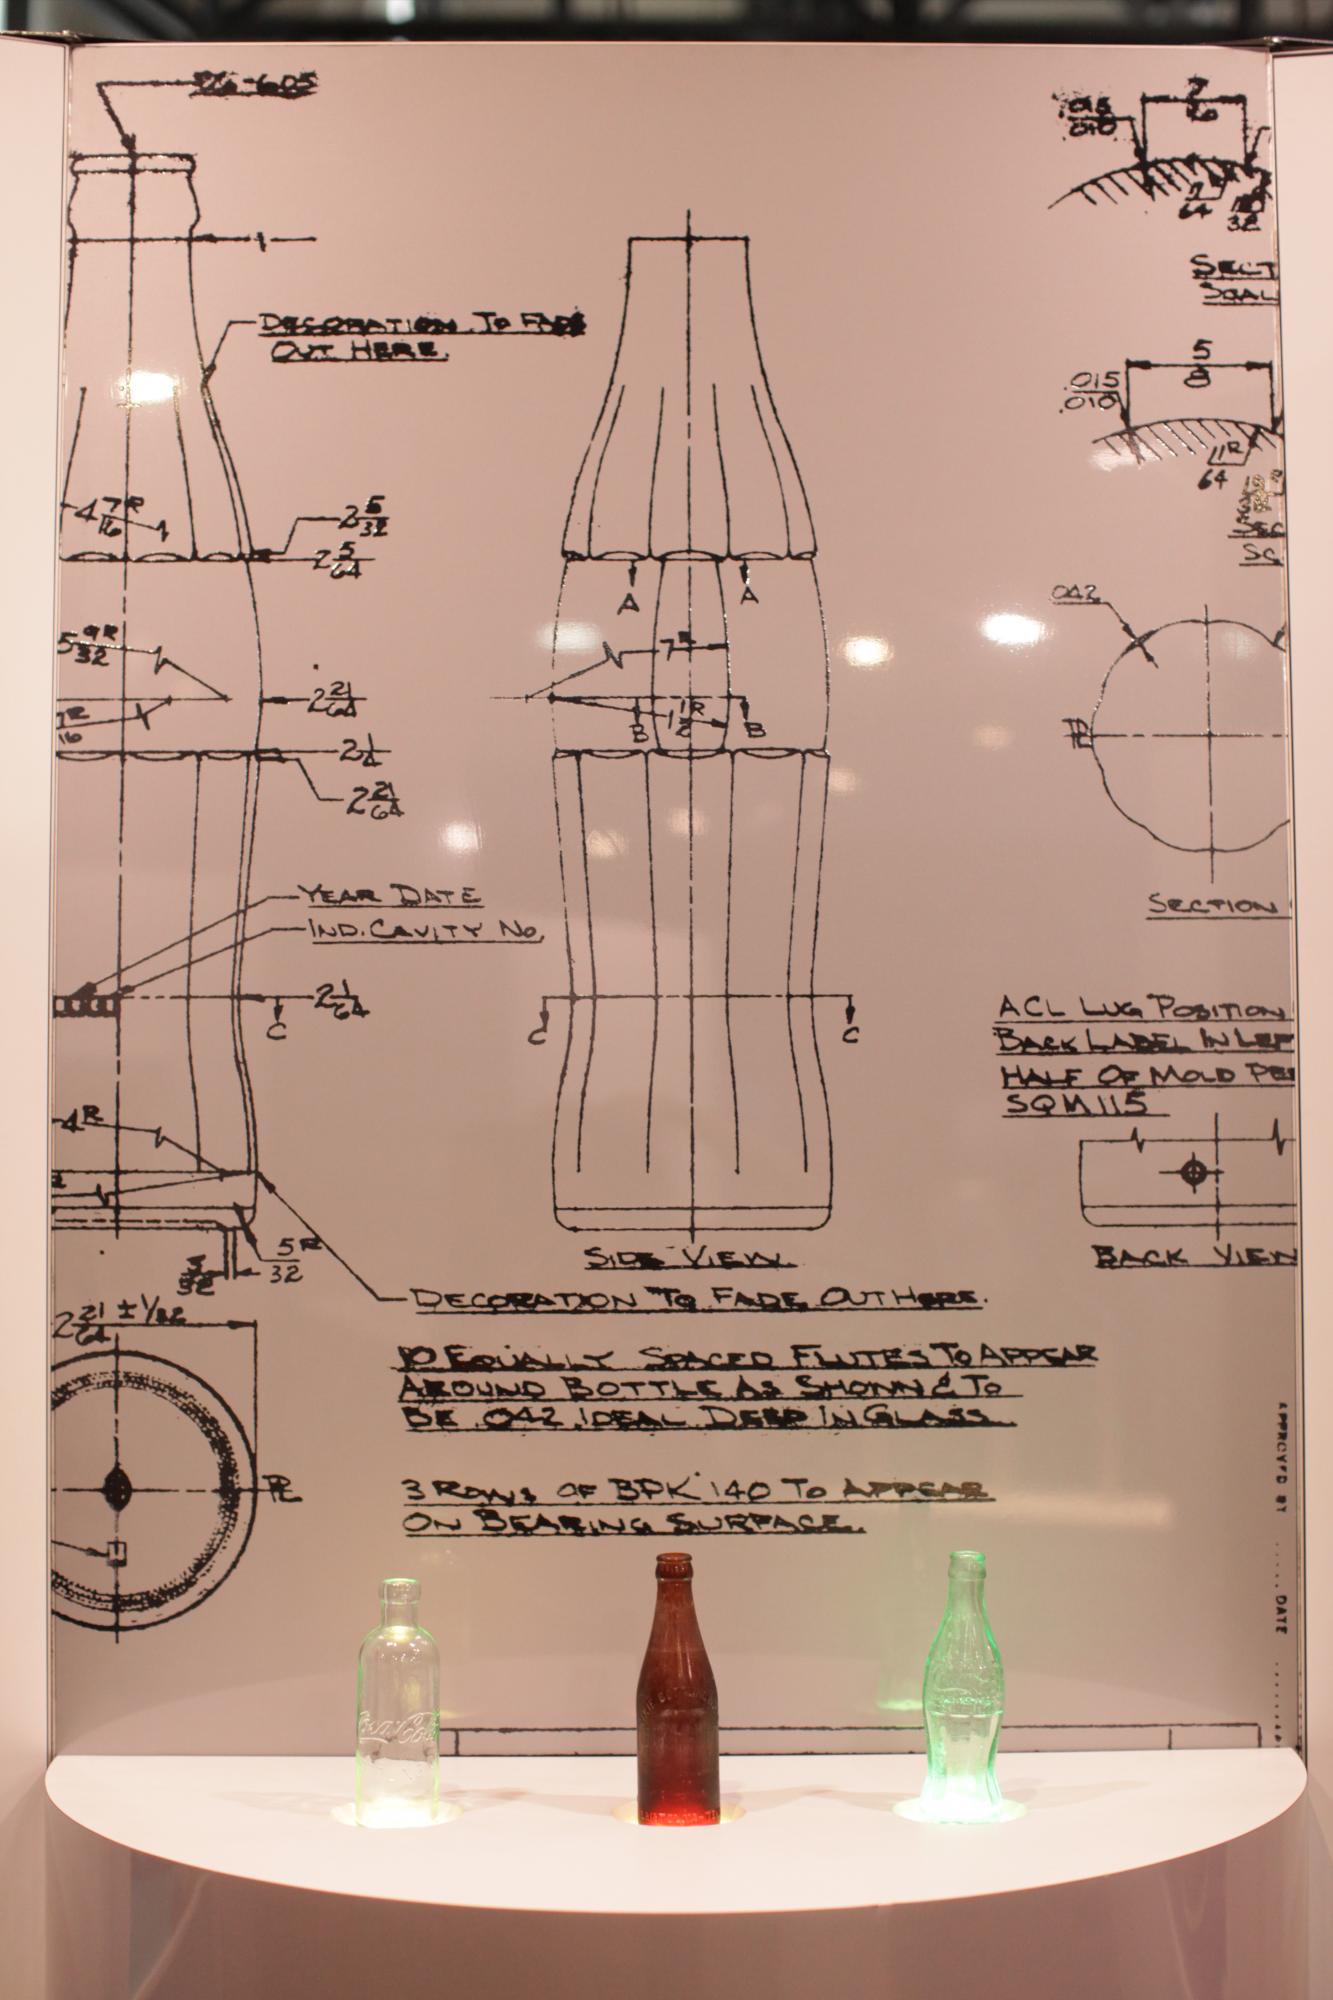 DECORATION TO FADE
OUT HERE.
4 7/16 R
2 5/32
2 5/64
5 9/32 R
2 21/64
2 1/4
2 21/64
YEAR DATE
IND. CAVITY No.
2 1/64
C
4 R
5/32 R
3/32
2 21/64 ± 1/32
A A
7 R
1 1/2 R
B B
C C
SIDE VIEW.
DECORATION TO FADE OUT HERE.
10 EQUALLY SPACED FLUTES TO APPEAR
AROUND BOTTLE AS SHOWN & TO
BE .042 IDEAL DEEP IN GLASS.
3 ROWS OF BPK 140 TO APPEAR
ON BEARING SURFACE.
.015
.010
7/16
SECT
SCAL
5/8
.015
.010
11/64 R
SC
.042
SECTION
ACL LUG POSITION
BACK LABEL IN LEF
HALF OF MOLD PER
SQM 115
BACK VIEW
APPROVED BY ..... DATE
Coca-Cola
Coca-Cola